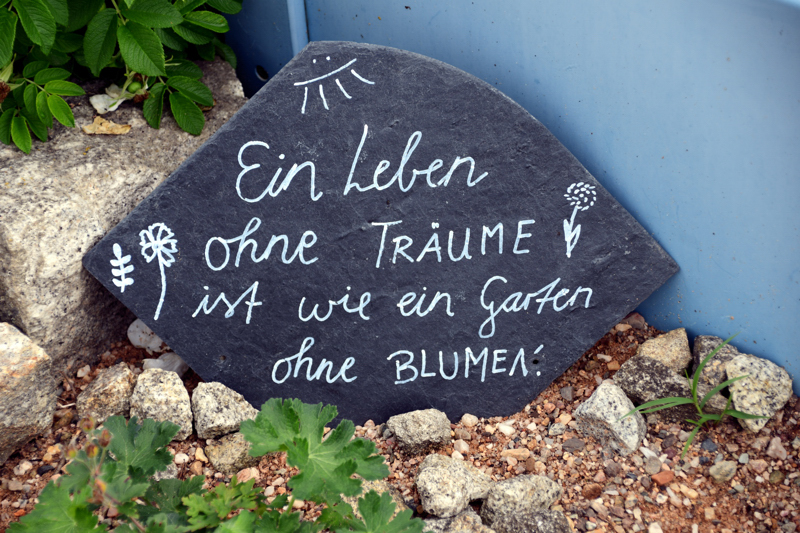 Ein Leben
ohne TRÄUME
ist wie ein Garten
ohne BLUMEN!